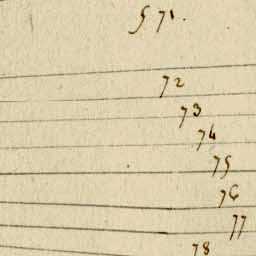 § 71.
72
73
74
75
76
77
78